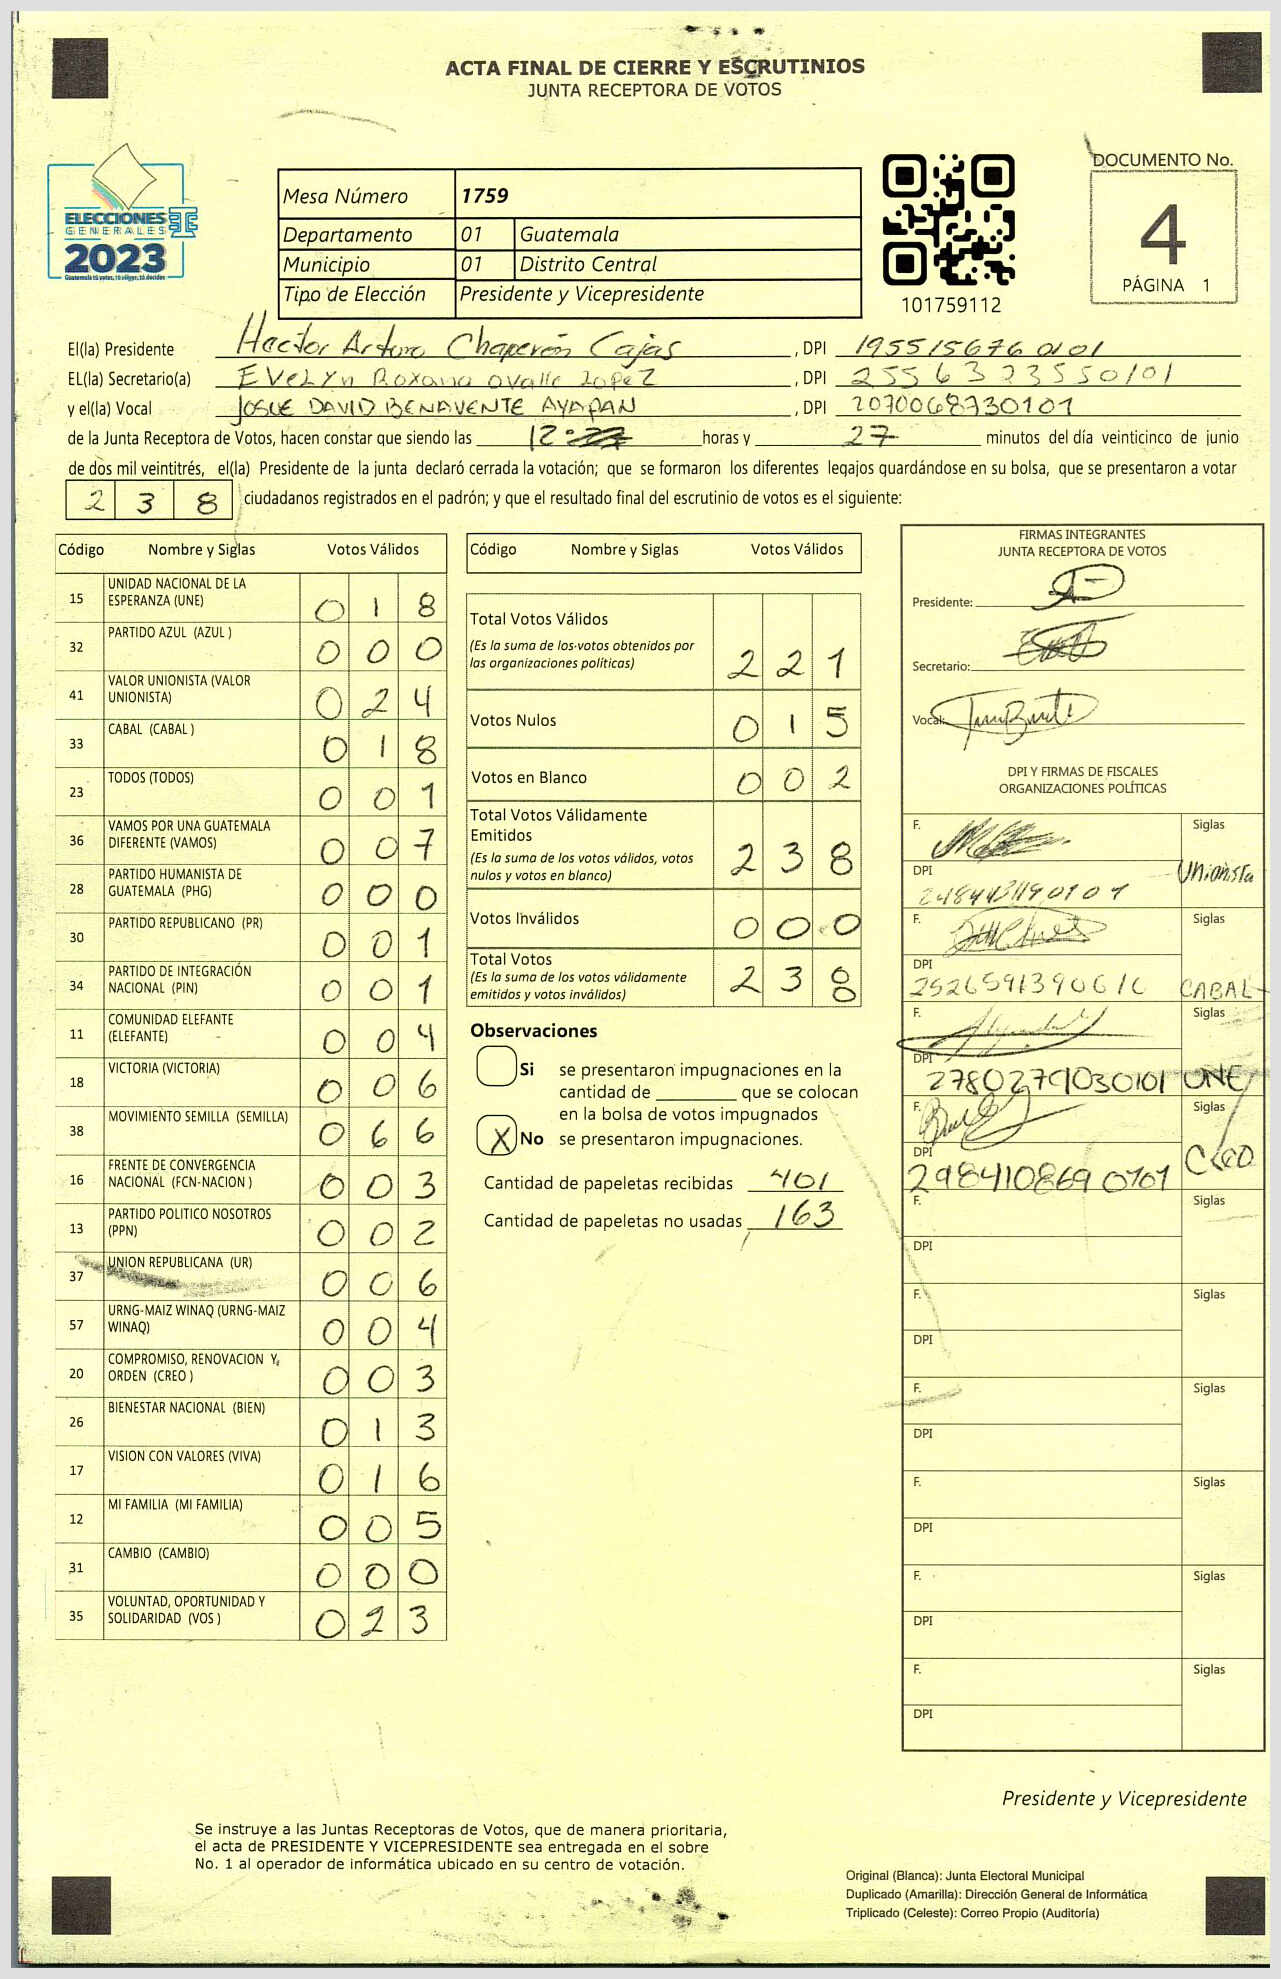 ACTA FINAL DE CIERRE Y ESCRUTINIOS
JUNTA RECEPTORA DE VOTOS
ELECCIONES
GENERALES
2023
Guatemala tú votas, tú eliges, tú decides
Mesa Número 1759
Departamento 01 Guatemala
Municipio 01 Distrito Central
Tipo de Elección Presidente y Vicepresidente
101759112
DOCUMENTO No.
4
PÁGINA 1
El(la) Presidente Hector Arturo Chaperón Cajas, DPI 1955156760101
EL(la) Secretario(a) EVELYn Roxana ovalle LopeZ, DPI 2556323550101
y el(la) Vocal JOSUE DAVID BENAVENTE AYAPAN, DPI 2070068730101
de la Junta Receptora de Votos, hacen constar que siendo las 12 horas y 27 minutos del día veinticinco de junio
de dos mil veintitrés, el(la) Presidente de la junta declaró cerrada la votación; que se formaron los diferentes legajos guardándose en su bolsa, que se presentaron a votar
2 3 8 ciudadanos registrados en el padrón; y que el resultado final del escrutinio de votos es el siguiente:
Código Nombre y Siglas Votos Válidos
15 UNIDAD NACIONAL DE LA ESPERANZA (UNE) 0 1 8
32 PARTIDO AZUL (AZUL ) 0 0 0
41 VALOR UNIONISTA (VALOR UNIONISTA) 0 2 4
33 CABAL (CABAL ) 0 1 8
23 TODOS (TODOS) 0 0 1
36 VAMOS POR UNA GUATEMALA DIFERENTE (VAMOS) 0 0 7
28 PARTIDO HUMANISTA DE GUATEMALA (PHG) 0 0 0
30 PARTIDO REPUBLICANO (PR) 0 0 1
34 PARTIDO DE INTEGRACIÓN NACIONAL (PIN) 0 0 1
11 COMUNIDAD ELEFANTE (ELEFANTE) 0 0 4
18 VICTORIA (VICTORIA) 0 0 6
38 MOVIMIENTO SEMILLA (SEMILLA) 0 6 6
16 FRENTE DE CONVERGENCIA NACIONAL (FCN-NACION ) 0 0 3
13 PARTIDO POLITICO NOSOTROS (PPN) 0 0 2
37 UNION REPUBLICANA (UR) 0 0 6
57 URNG-MAIZ WINAQ (URNG-MAIZ WINAQ) 0 0 4
20 COMPROMISO, RENOVACION Y, ORDEN (CREO ) 0 0 3
26 BIENESTAR NACIONAL (BIEN) 0 1 3
17 VISION CON VALORES (VIVA) 0 1 6
12 MI FAMILIA (MI FAMILIA) 0 0 5
31 CAMBIO (CAMBIO) 0 0 0
35 VOLUNTAD, OPORTUNIDAD Y SOLIDARIDAD (VOS ) 0 2 3
Código Nombre y Siglas Votos Válidos
Total Votos Válidos 2 2 1
(Es la suma de los votos obtenidos por
las organizaciones políticas)
Votos Nulos 0 1 5
Votos en Blanco 0 0 2
Total Votos Válidamente
Emitidos 2 3 8
(Es la suma de los votos válidos, votos
nulos y votos en blanco)
Votos Inválidos 0 0 0
Total Votos 2 3 8
(Es la suma de los votos válidamente
emitidos y votos inválidos)
Observaciones
Si se presentaron impugnaciones en la
cantidad de ________ que se colocan
en la bolsa de votos impugnados
X No se presentaron impugnaciones.
Cantidad de papeletas recibidas 401
Cantidad de papeletas no usadas 163
FIRMAS INTEGRANTES
JUNTA RECEPTORA DE VOTOS
Presidente:
Secretario:
Vocal:
DPI Y FIRMAS DE FISCALES
ORGANIZACIONES POLÍTICAS
F. Siglas
DPI Unionista
F. Siglas
DPI
CABAL
F. Siglas
DPI
2780279030101 UNE
F. Siglas
DPI
2984108690101 CREO
F. Siglas
DPI
F. Siglas
DPI
F. Siglas
DPI
F. Siglas
DPI
F. Siglas
DPI
F. Siglas
DPI
Presidente y Vicepresidente
Se instruye a las Juntas Receptoras de Votos, que de manera prioritaria,
el acta de PRESIDENTE Y VICEPRESIDENTE sea entregada en el sobre
No. 1 al operador de informática ubicado en su centro de votación.
Original (Blanca): Junta Electoral Municipal
Duplicado (Amarilla): Dirección General de Informática
Triplicado (Celeste): Correo Propio (Auditoría)